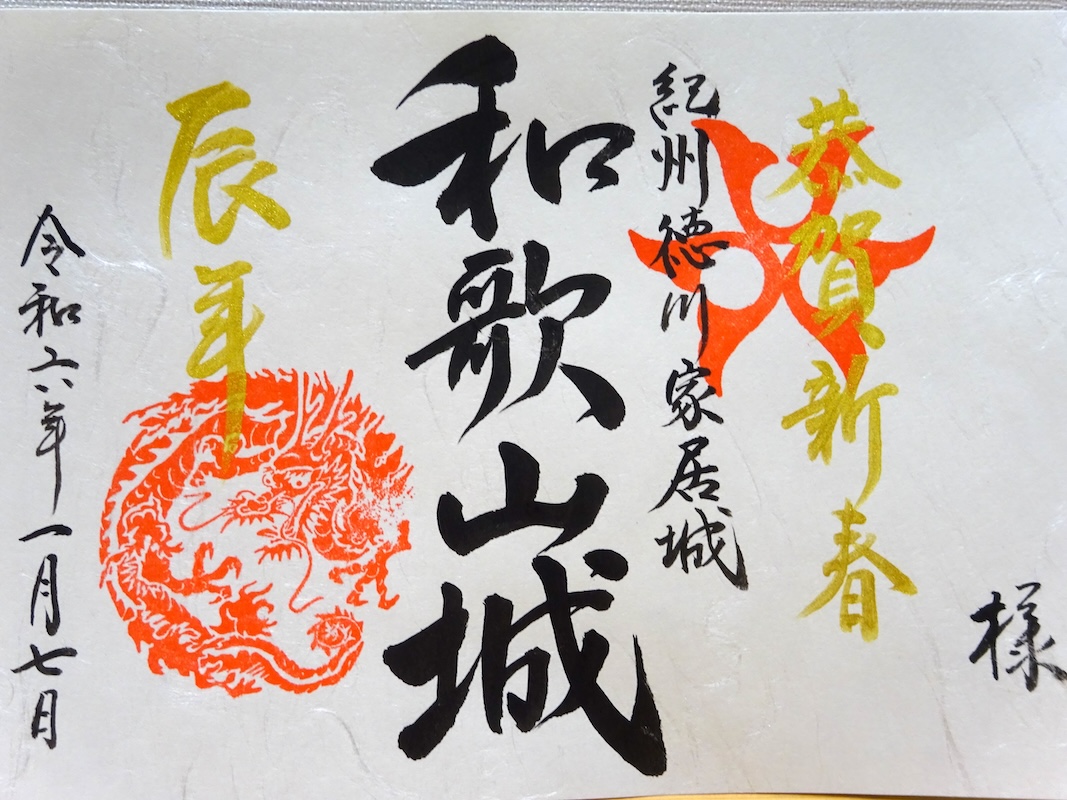 様
恭賀新春
紀州徳川家居城
和歌山城
辰年
令和六年一月七日